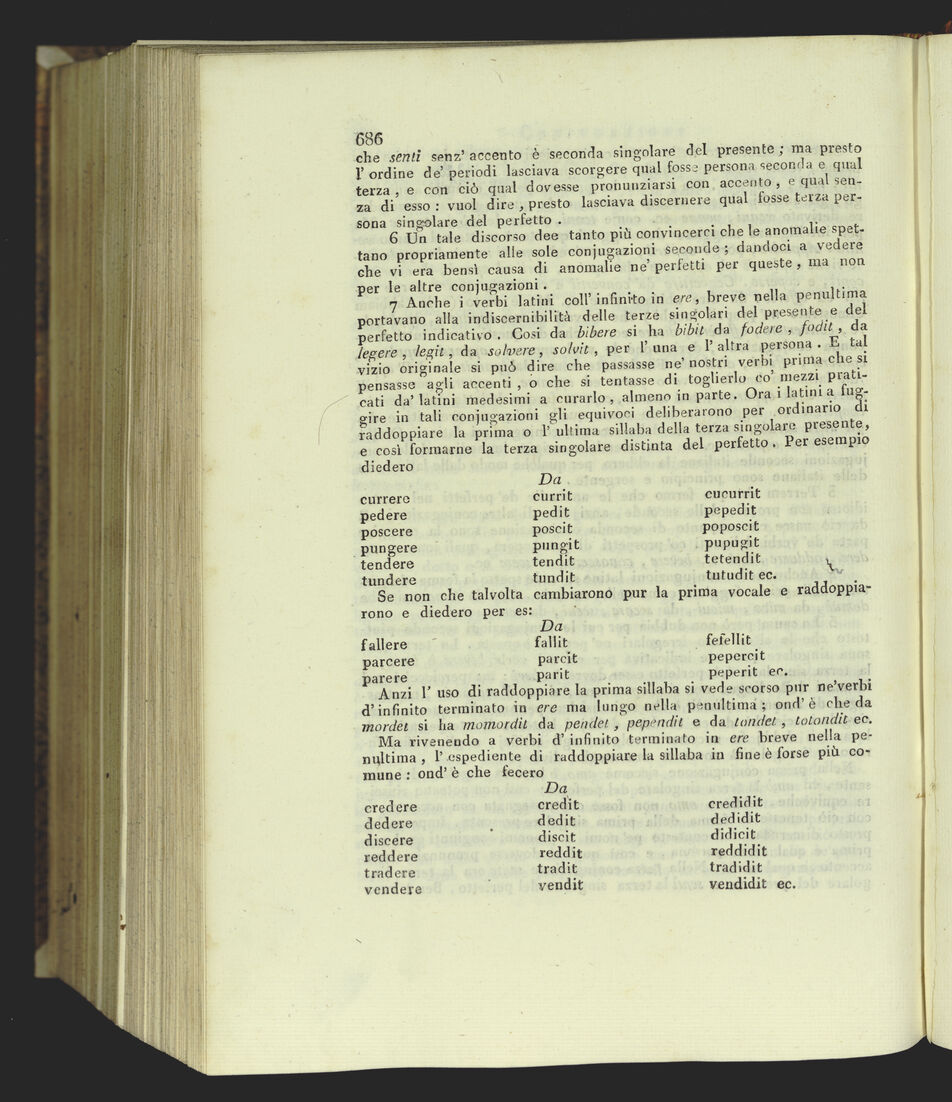 686
che senti senz' accento è seconda singolare del presente; ma presto
l' ordine de' periodi lasciava scorgere qual fosse persona seconda e qual
terza, e con ciò qual dovesse pronunziarsi con accento, e qual sen-
za di esso: vuol dire, presto lasciava discernere qual fosse terza per-
sona singolare del perfetto.
6 Un tale discorso dee tanto più convincerci che le anomalie spet-
tano propriamente alle sole conjugazioni seconde; dandoci a vedere
che vi era bensì causa di anomalie ne' perfetti per queste, ma non
per le altre conjugazioni.
7 Anche i verbi latini coll' infinito in ere, breve nella penultima
portavano alla indiscernibilità delle terze singolari del presente e del
perfetto indicativo. Così da bibere si ha bibit da fodere, fodit, da
legere, legit, da solvere, solvit, per l' una e l' altra persona. E tal
vizio originale si può dire che passasse ne' nostri verbi prima che si
pensasse agli accenti, o che si tentasse di toglierlo co' mezzi prati-
cati da' latini medesimi a curarlo, almeno in parte. Ora i latini a fug-
gire in tali conjugazioni gli equivoci deliberarono per ordinario di
raddoppiare la prima o l' ultima sillaba della terza singolare presente,
e così formarne la terza singolare distinta del perfetto. Per esempio
diedero
Da
currere currit cucurrit
pedere pedit pepedit
poscere poscit poposcit
pungere pungit pupugit
tendere tendit tetendit
tundere tundit tutudit ec.
Se non che talvolta cambiarono pur la prima vocale e raddoppia-
rono e diedero per es:
Da
fallere fallit fefellit
parcere parcit pepercit
parere parit peperit ec.
Anzi l' uso di raddoppiare la prima sillaba si vede scorso pur ne'verbi
d' infinito terminato in ere ma lungo nella penultima; ond' è che da
mordet si ha momordit da pendet, pependit e da tondet, totondit ec.
Ma rivenendo a verbi d' infinito terminato in ere breve nella pe-
nultima, l' espediente di raddoppiare la sillaba in fine è forse più co-
mune: ond' è che fecero
Da
credere credit credidit
dedere dedit dedidit
discere discit didicit
reddere reddit reddidit
tradere tradit tradidit
vendere vendit vendidit ec.